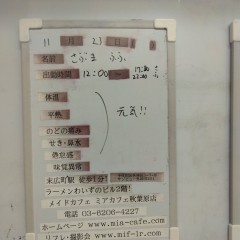 11 月 23 日
名前 さぶま ふふ
出勤時間 12:00〜
体温
平熱
元気!!
のどの痛み
せき・鼻水
倦怠感
味覚異常
末広町駅 徒歩1分!
ラーメンわいずのビル2階!
メイドカフェ ミアカフェ秋葉原店
電話 03-6206-4227
ホームページ www.mia-cafe.com
リフレ・撮影会 www.mif-lr.com